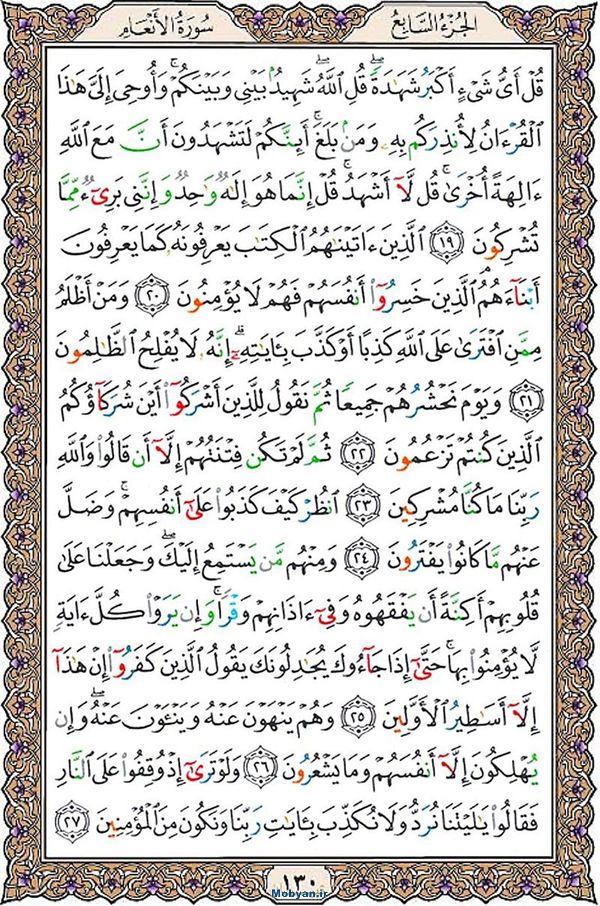 الجُزْءُ السَّابِعُ
سُورَةُ الأَنْعَامِ
قُلْ أَيُّ شَيْءٍ أَكْبَرُ شَهَٰدَةًۖ قُلِ ٱللَّهُۖ شَهِيدُۢ بَيْنِي وَبَيْنَكُمْۚ وَأُوحِيَ إِلَيَّ هَٰذَا
ٱلْقُرْءَانُ لِأُنذِرَكُم بِهِۦ وَمَنۢ بَلَغَۚ أَئِنَّكُمْ لَتَشْهَدُونَ أَنَّ مَعَ ٱللَّهِ
ءَالِهَةً أُخْرَىٰۚ قُل لَّآ أَشْهَدُۚ قُلْ إِنَّمَا هُوَ إِلَٰهٌ وَٰحِدٌ وَإِنَّنِي بَرِيٓءٌ مِّمَّا
تُشْرِكُونَ ١٩ ٱلَّذِينَ ءَاتَيْنَٰهُمُ ٱلْكِتَٰبَ يَعْرِفُونَهُۥ كَمَا يَعْرِفُونَ
أَبْنَآءَهُمُۘ ٱلَّذِينَ خَسِرُوٓا۟ أَنفُسَهُمْ فَهُمْ لَا يُؤْمِنُونَ ٢٠ وَمَنْ أَظْلَمُ
مِمَّنِ ٱفْتَرَىٰ عَلَى ٱللَّهِ كَذِبًا أَوْ كَذَّبَ بِـَٔايَٰتِهِۦٓۗ إِنَّهُۥ لَا يُفْلِحُ ٱلظَّٰلِمُونَ
٢١ وَيَوْمَ نَحْشُرُهُمْ جَمِيعًا ثُمَّ نَقُولُ لِلَّذِينَ أَشْرَكُوٓا۟ أَيْنَ شُرَكَآؤُكُمُ
ٱلَّذِينَ كُنتُمْ تَزْعُمُونَ ٢٢ ثُمَّ لَمْ تَكُن فِتْنَتُهُمْ إِلَّآ أَن قَالُوا۟ وَٱللَّهِ
رَبِّنَا مَا كُنَّا مُشْرِكِينَ ٢٣ ٱنظُرْ كَيْفَ كَذَبُوا۟ عَلَىٰٓ أَنفُسِهِمْۚ وَضَلَّ
عَنْهُم مَّا كَانُوا۟ يَفْتَرُونَ ٢٤ وَمِنْهُم مَّن يَسْتَمِعُ إِلَيْكَۖ وَجَعَلْنَا عَلَىٰ
قُلُوبِهِمْ أَكِنَّةً أَن يَفْقَهُوهُ وَفِيٓ ءَاذَانِهِمْ وَقْرًاۚ وَإِن يَرَوْا۟ كُلَّ ءَايَةٍ
لَّا يُؤْمِنُوا۟ بِهَاۚ حَتَّىٰٓ إِذَا جَآءُوكَ يُجَٰدِلُونَكَ يَقُولُ ٱلَّذِينَ كَفَرُوٓا۟ إِنْ هَٰذَآ
إِلَّآ أَسَٰطِيرُ ٱلْأَوَّلِينَ ٢٥ وَهُمْ يَنْهَوْنَ عَنْهُ وَيَنْـَٔوْنَ عَنْهُۖ وَإِن
يُهْلِكُونَ إِلَّآ أَنفُسَهُمْ وَمَا يَشْعُرُونَ ٢٦ وَلَوْ تَرَىٰٓ إِذْ وُقِفُوا۟ عَلَى ٱلنَّارِ
فَقَالُوا۟ يَٰلَيْتَنَا نُرَدُّ وَلَا نُكَذِّبَ بِـَٔايَٰتِ رَبِّنَا وَنَكُونَ مِنَ ٱلْمُؤْمِنِينَ ٢٧
١٣٠
Mobyan.ir